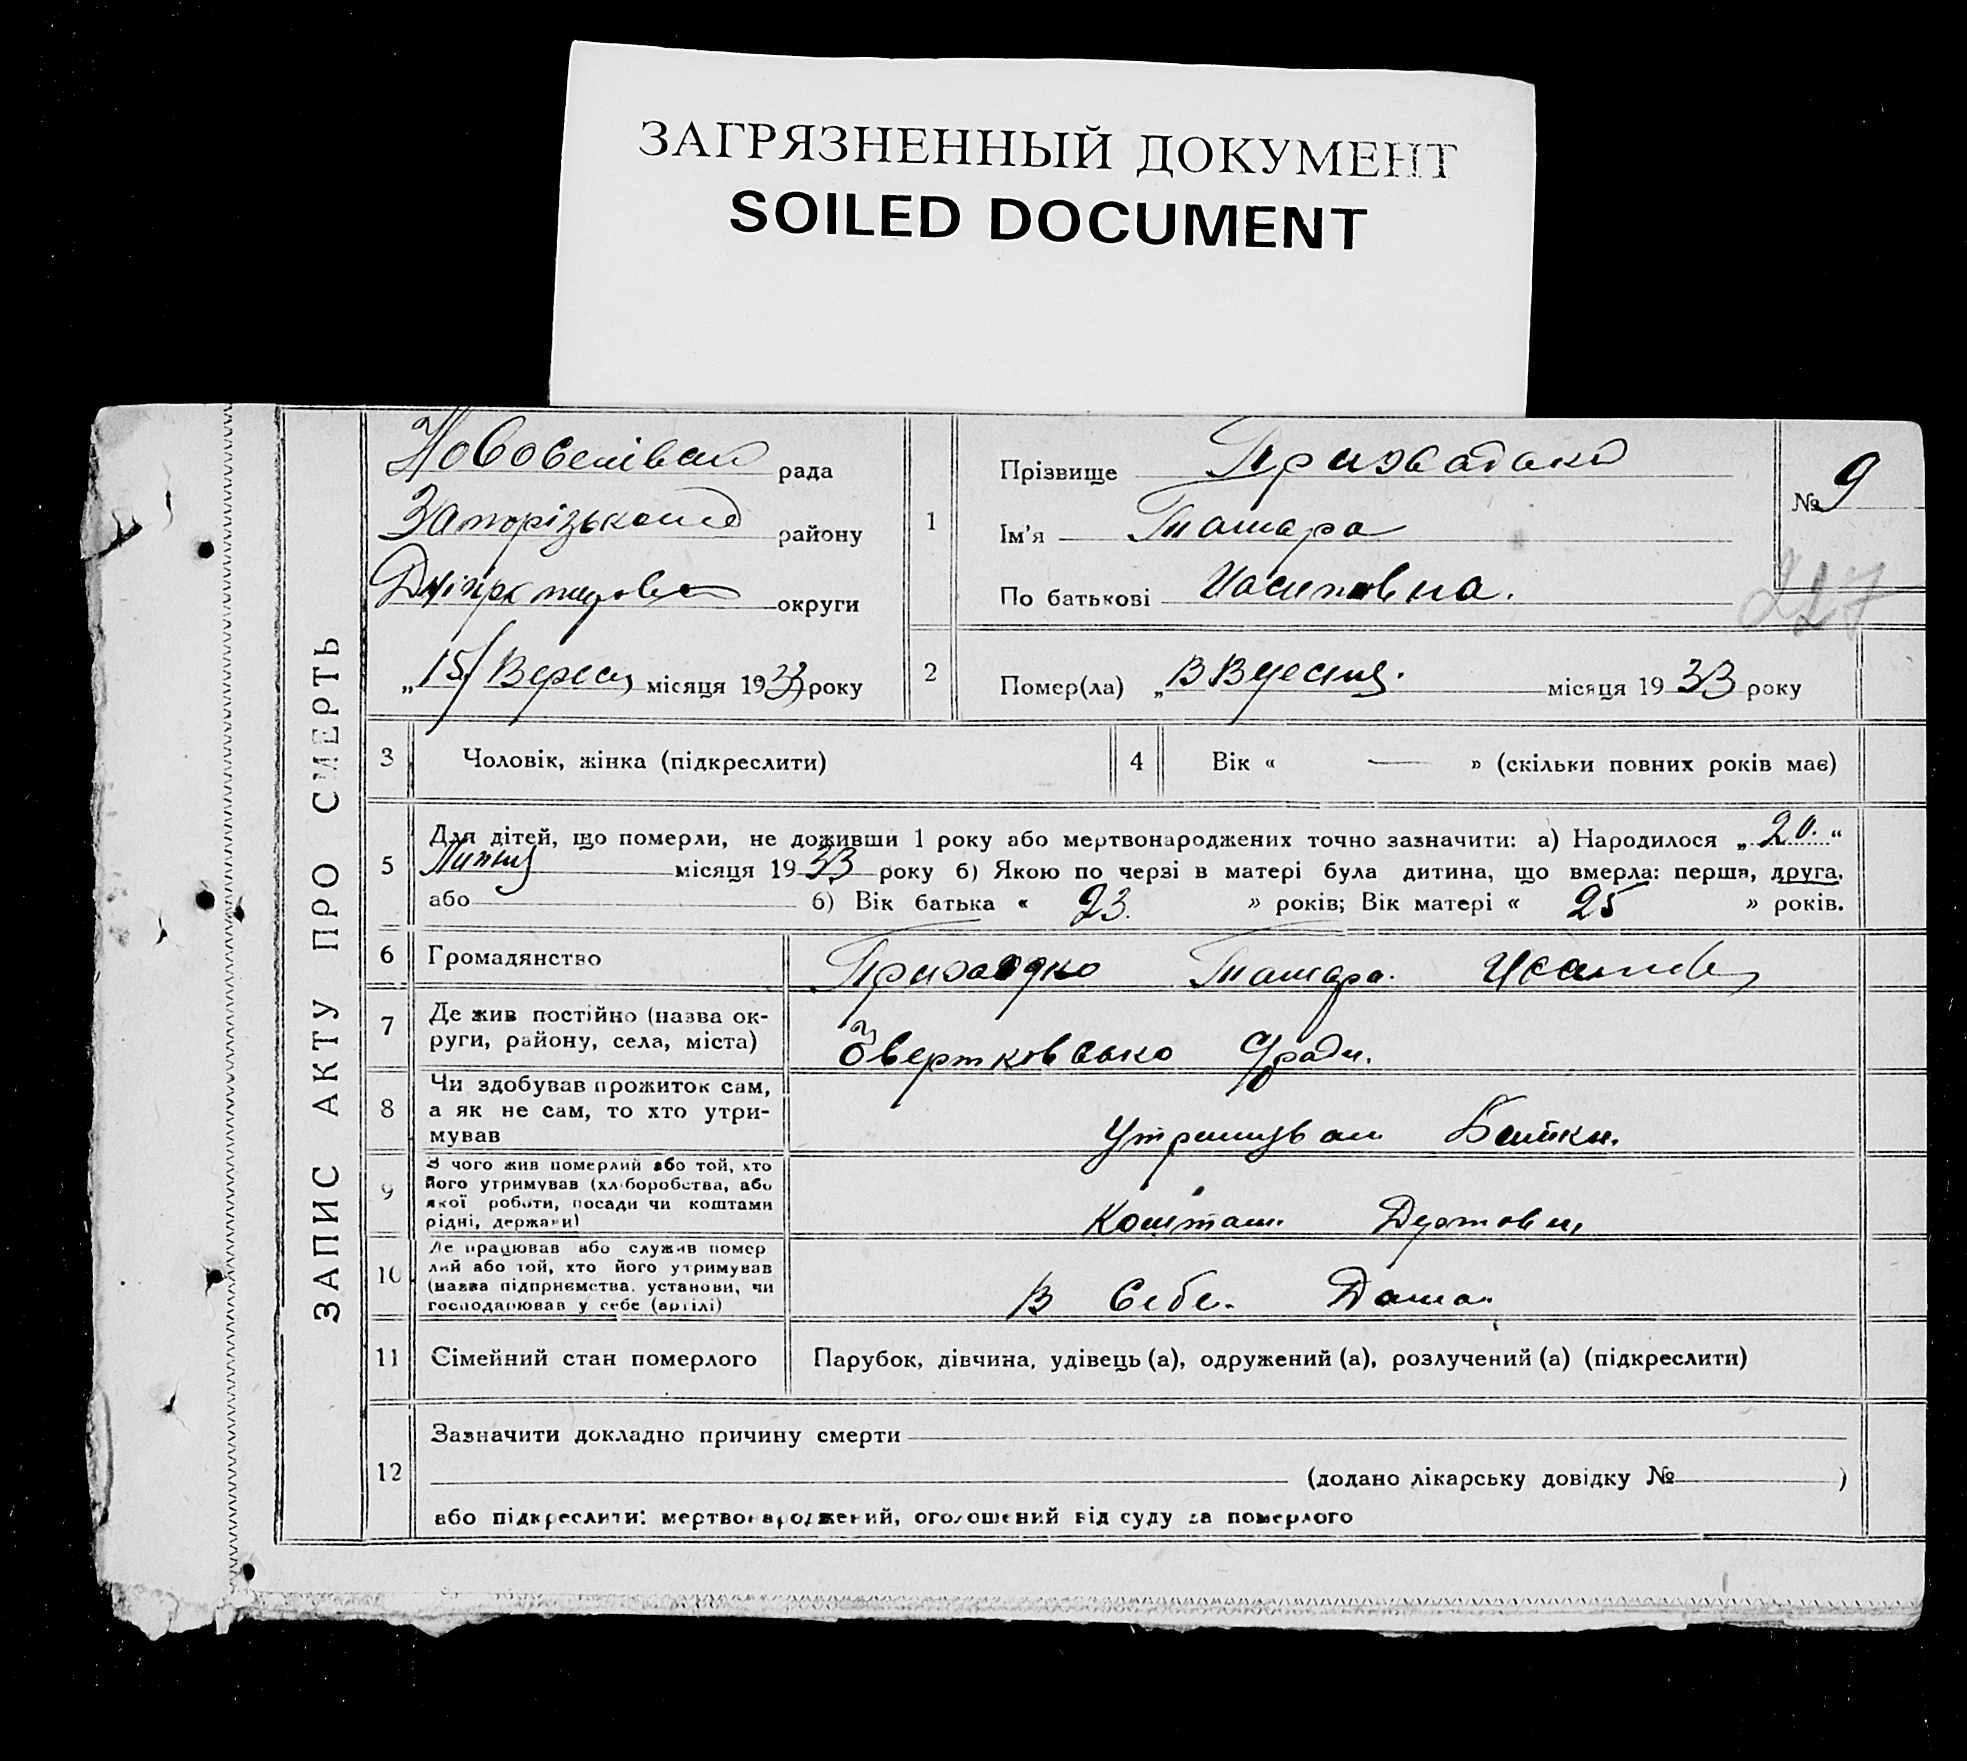 ЗАГРЯЗНЕННЫЙ ДОКУМЕНТ
SOILED DOCUMENT
ЗАПИС АКТУ ПРО СМЕРТЬ
рада
Запорізького району
округи
„15/ Верес, місяця 1933 року
1
Прізвище
Ім'я Тамара
По батькові
№ 9
227
2
Помер(ла) „ місяця 19 33 року
3 Чоловік, жінка (підкреслити)
4 Вік « — » (скільки повних років має)
5
Для дітей, що померли, не доживши 1 року або мертвонароджених точно зазначити: а) Народилося „ 20. “
Липня місяця 19 33 року б) Якою по черзі в матері була дитина, що вмерла: перша, друга,
або б) Вік батька « 23. » років; Вік матері « 25 » років.
6 Громадянство Приходко Тамара.
7
Де жив постійно (назва ок-
руги, району, села, міста)
8
Чи здобував прожиток сам,
а як не сам, то хто утри-
мував
Батьки.
9
З чого жив померлий або той, хто
його утримував (хліборобства, або
якої роботи, посади чи коштами
рідні, держави)
10
Де працював або служив помер
лий або той, хто його утримував
(назва підприємства, установи, чи
господарював у себе (артілі)
В Себе. Дома.
11 Сімейний стан померлого Парубок, дівчина, удівець (а), одружений (а), розлучений (а) (підкреслити)
12
Зазначити докладно причину смерти
(додано лікарську довідку № )
або підкреслити: мертвонароджений, оголошений від суду за померлого